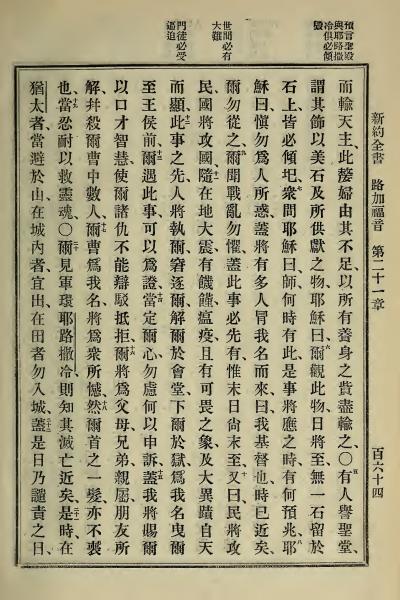 新約全書 路加福音 第二十一章 百六十四
預言聖殿
與耶路撒
冷俱必傾
毀
世間必有
大難
門徒必受
逼迫
而輸天主、此嫠婦由其不足、以所有養身之貲盡輸之、〇五有人譽聖堂、
謂其飾以美石及所供獻之物、耶穌曰、六爾觀此物、日將至、無一石留於
石上、皆必傾圮、七衆問耶穌曰、師、何時有此、是事將應之時、有何預兆、八耶
穌曰、慎勿爲人所惑、蓋將有多人冒我名而來、曰、我基督也、時已近矣、
爾勿從之、九爾聞戰亂勿懼、蓋此事必先有、惟末日尙未至、十又曰、民將攻
民、國將攻國、十一隨在地大震、有饑饉瘟疫、且有可畏之象、及大異蹟自天
而顯、十二此事之先、人將執爾窘逐爾、解爾於會堂、下爾於獄、爲我名曳爾
至王侯前、十三爾遇此事、可以爲證、十四當定爾心、勿慮何以申訴、十五蓋我將賜爾
以口才智慧、使爾諸仇不能辯駁抵拒、十六爾將爲父母兄弟親屬朋友所
解、幷殺爾曹中數人、十七爾曹爲我名、將爲衆所憾、十八然爾首之一髮、亦不喪
也、十九當忍耐以救靈魂、〇二十爾見軍環耶路撒冷、則知其滅亡近矣、二十一是時在
猶太者、當避於山、在城內者、宜出、在田者、勿入城、二十二蓋是日乃譴責之日、